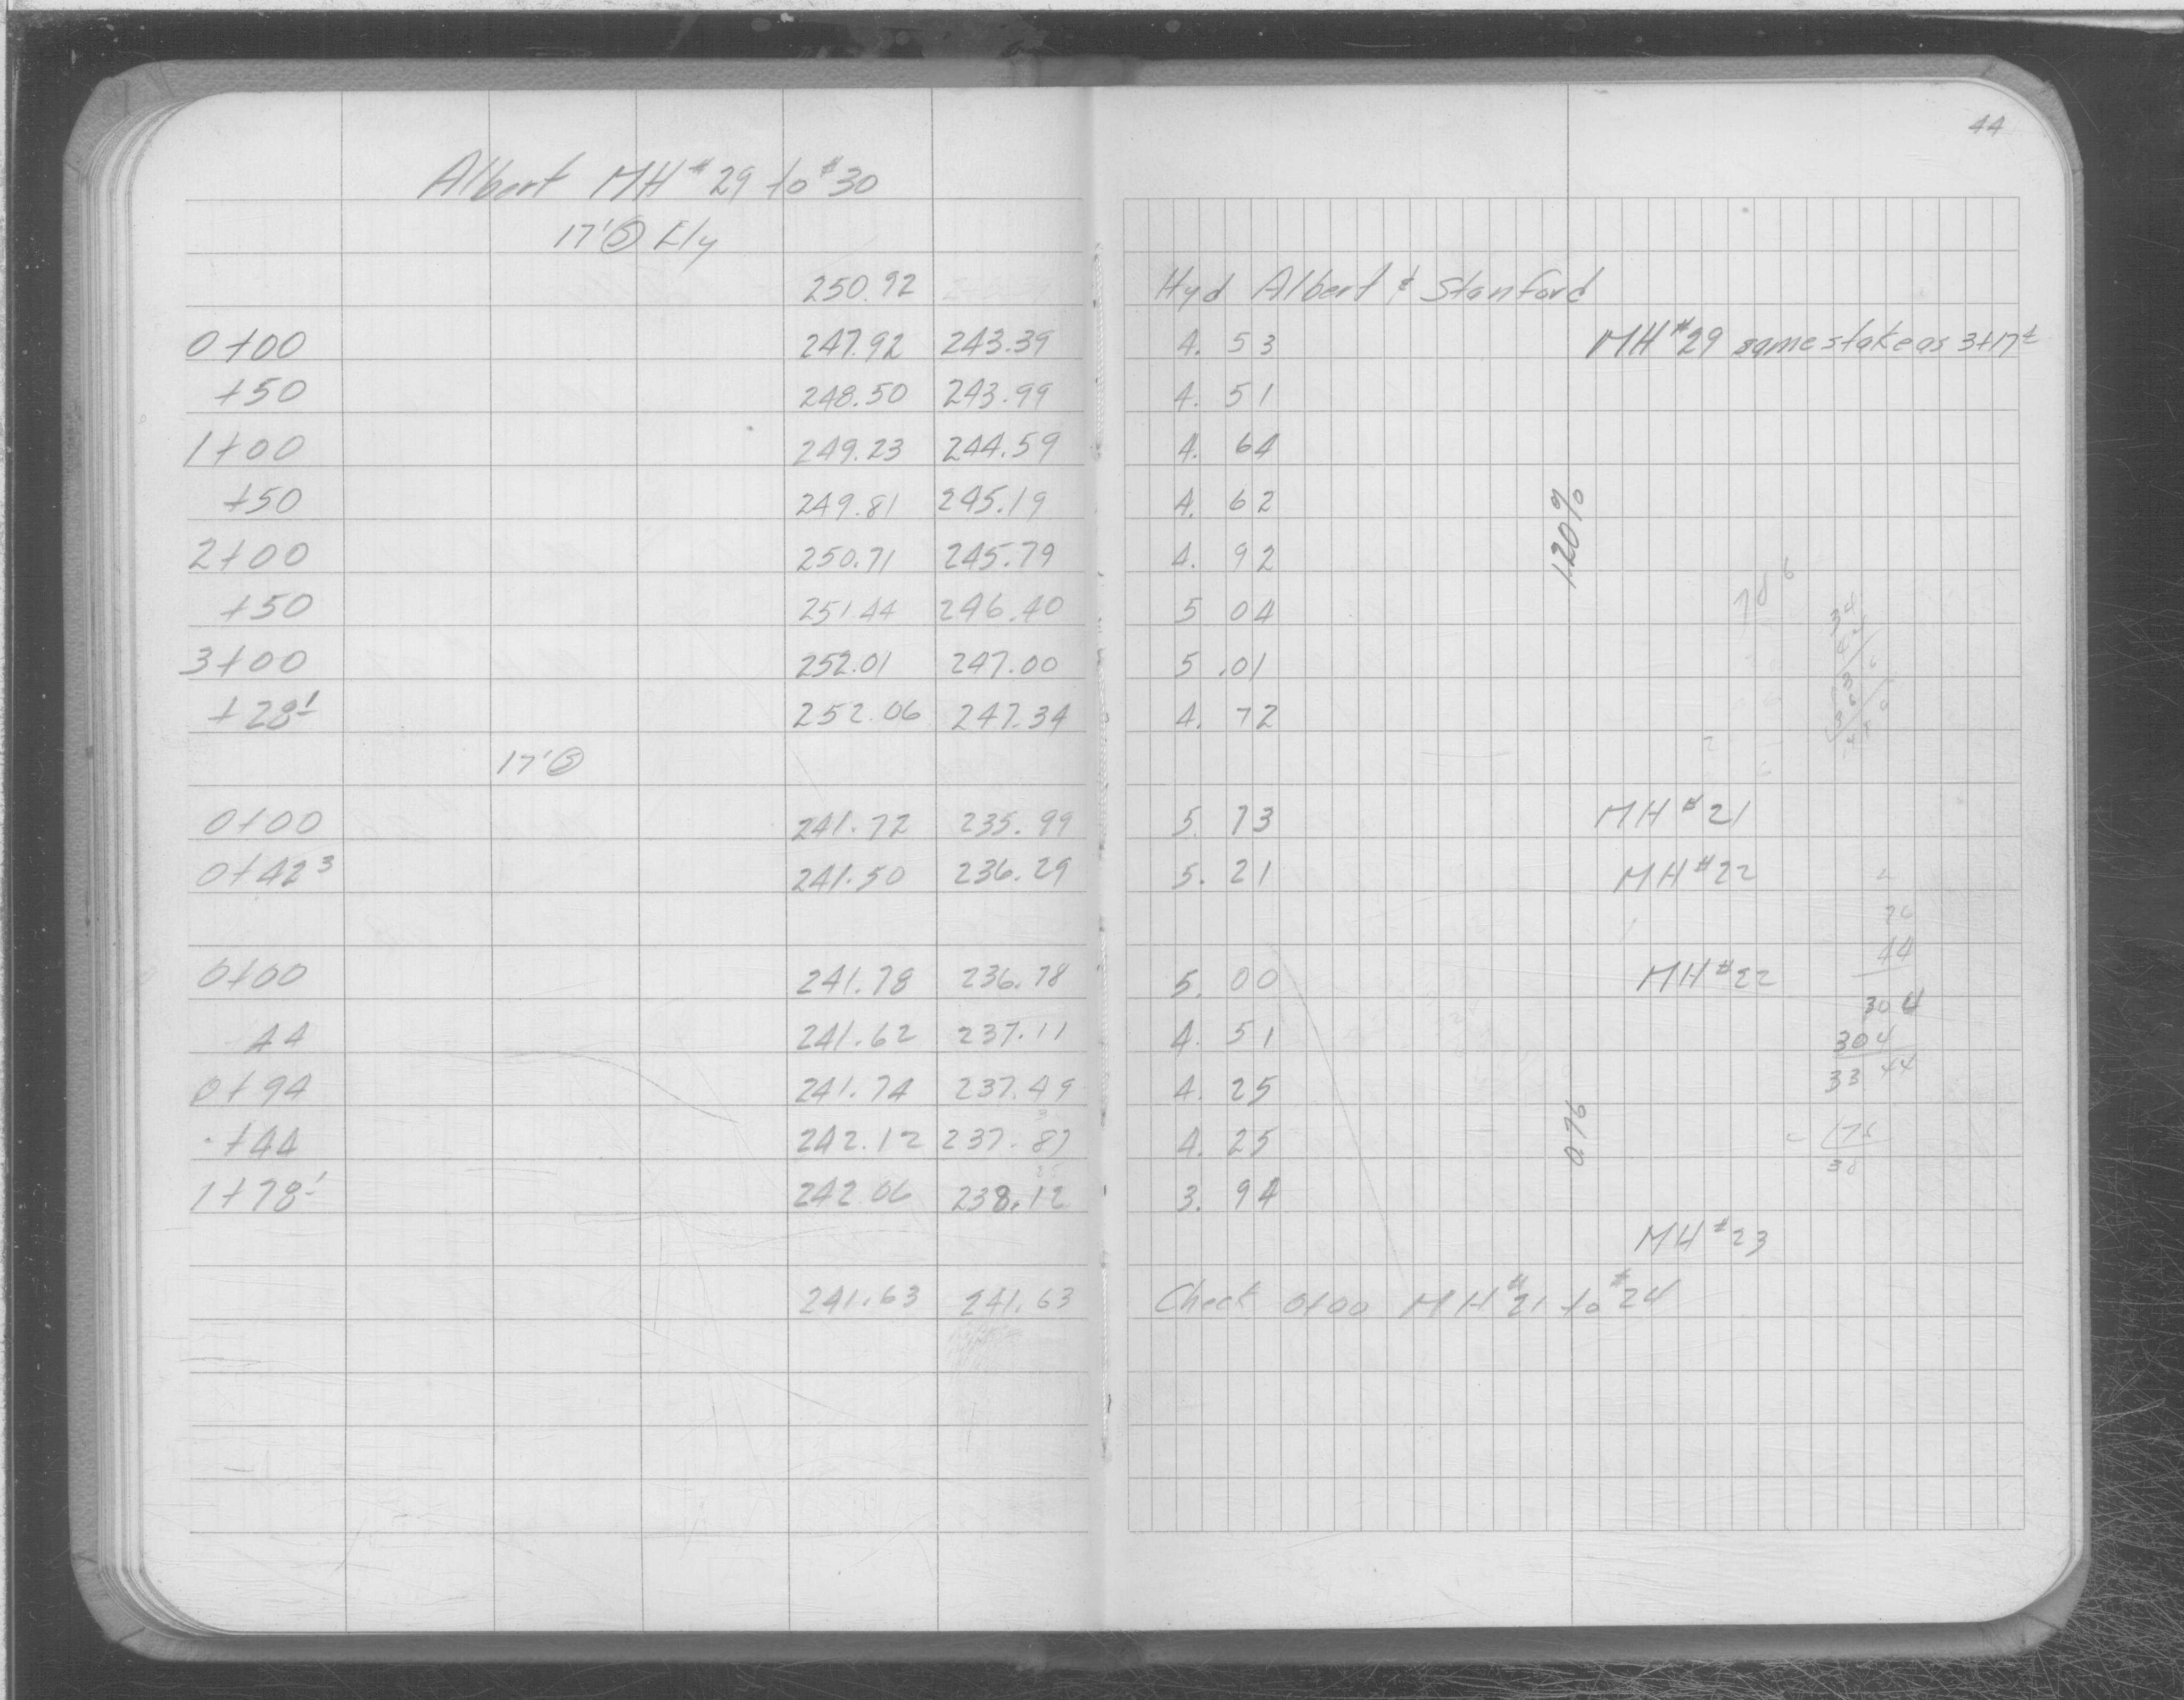 44
Albert MH #29 to #30
17' Ⓢ Ely
250.92 Hyd Albert & Stanford
0+00 247.92 243.39 4.53 MH #29 same stake as 3+17±
+50 248.50 243.99 4.51
1+00 249.23 244.59 4.64
+50 249.81 245.19 4.62
1.20%
2+00 250.71 245.79 4.92
+50 251.44 246.40 5 04
3+00 252.01 247.00 5.01
+28± 252.06 247.34 4.72
17' Ⓢ
0+00 241.72 235.99 5.73 MH #21
0+42³ 241.50 236.29 5.21 MH #22
76
44
0+00 241.78 236.78 5.00 MH #22
304
44 241.62 237.11 4.51
304
33 44
0+94 241.74 237.49 4.25
0.76
+44 242.12 237.87 4.25
1+78± 242.06 238.12 3.94
MH #23
241.63 241.63 Check 0+00 MH #21 to #24